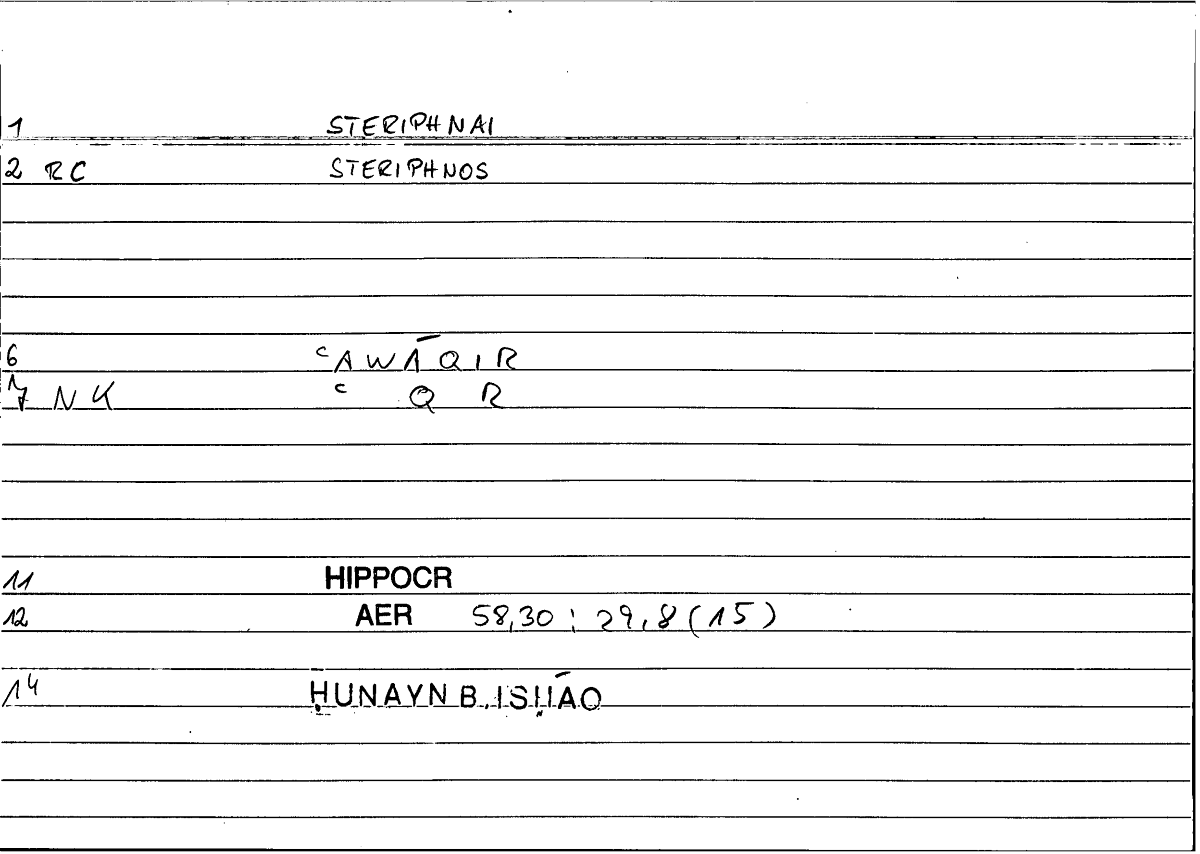 1 STERIPHNAI
2 RC STERIPHNOS
6 ᶜAWĀQIR
7 NK ᶜ Q R
11 HIPPOCR
12 AER 58,30 ; 29,8 (15)
14 ḤUNAYN B. ISḤĀQ